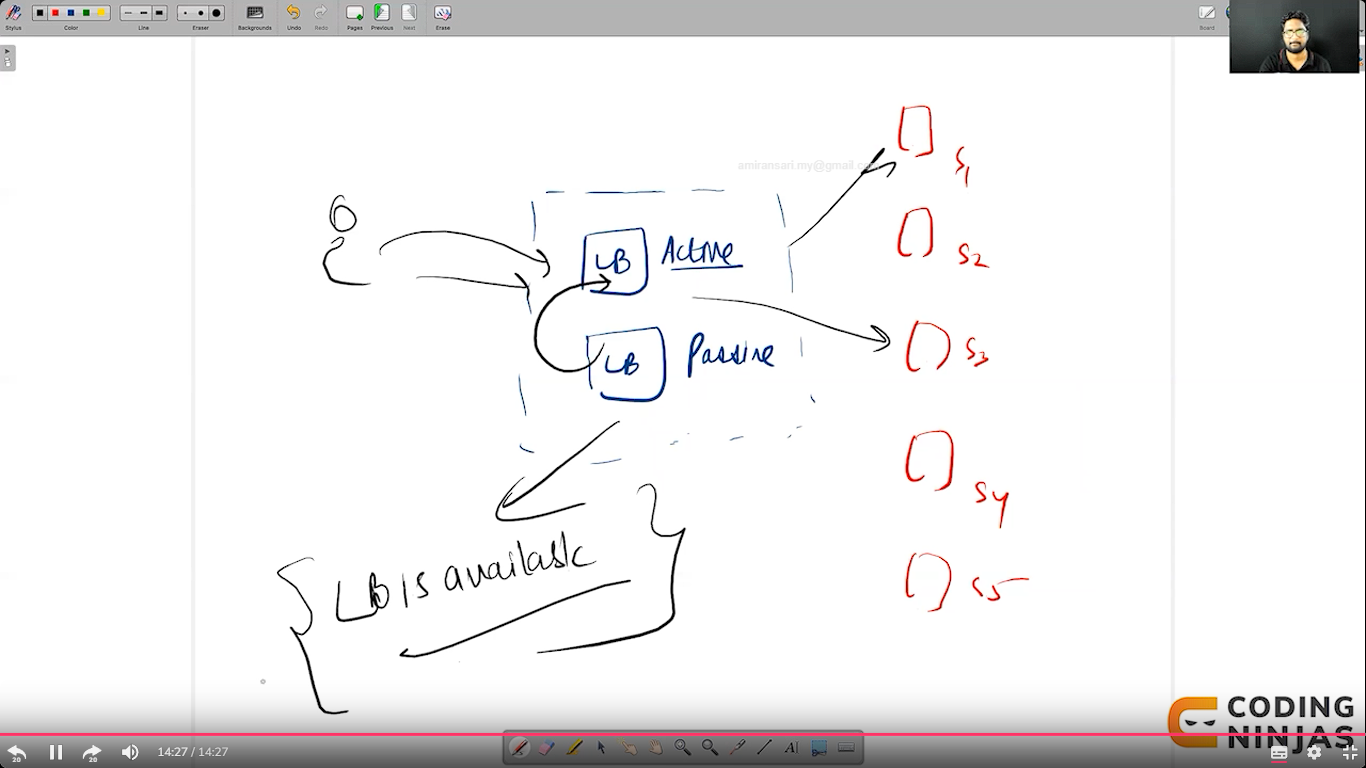 Stylus
Color
Line
Eraser
Backgrounds
Undo
Redo
Pages
Previous
Next
Erase
Board
amiransari.my@gmail.com
S1
LB Active
S2
LB Passive
S3
S4
LB is available
S5
CODING
NINJAS
20
20
14:27 / 14:27